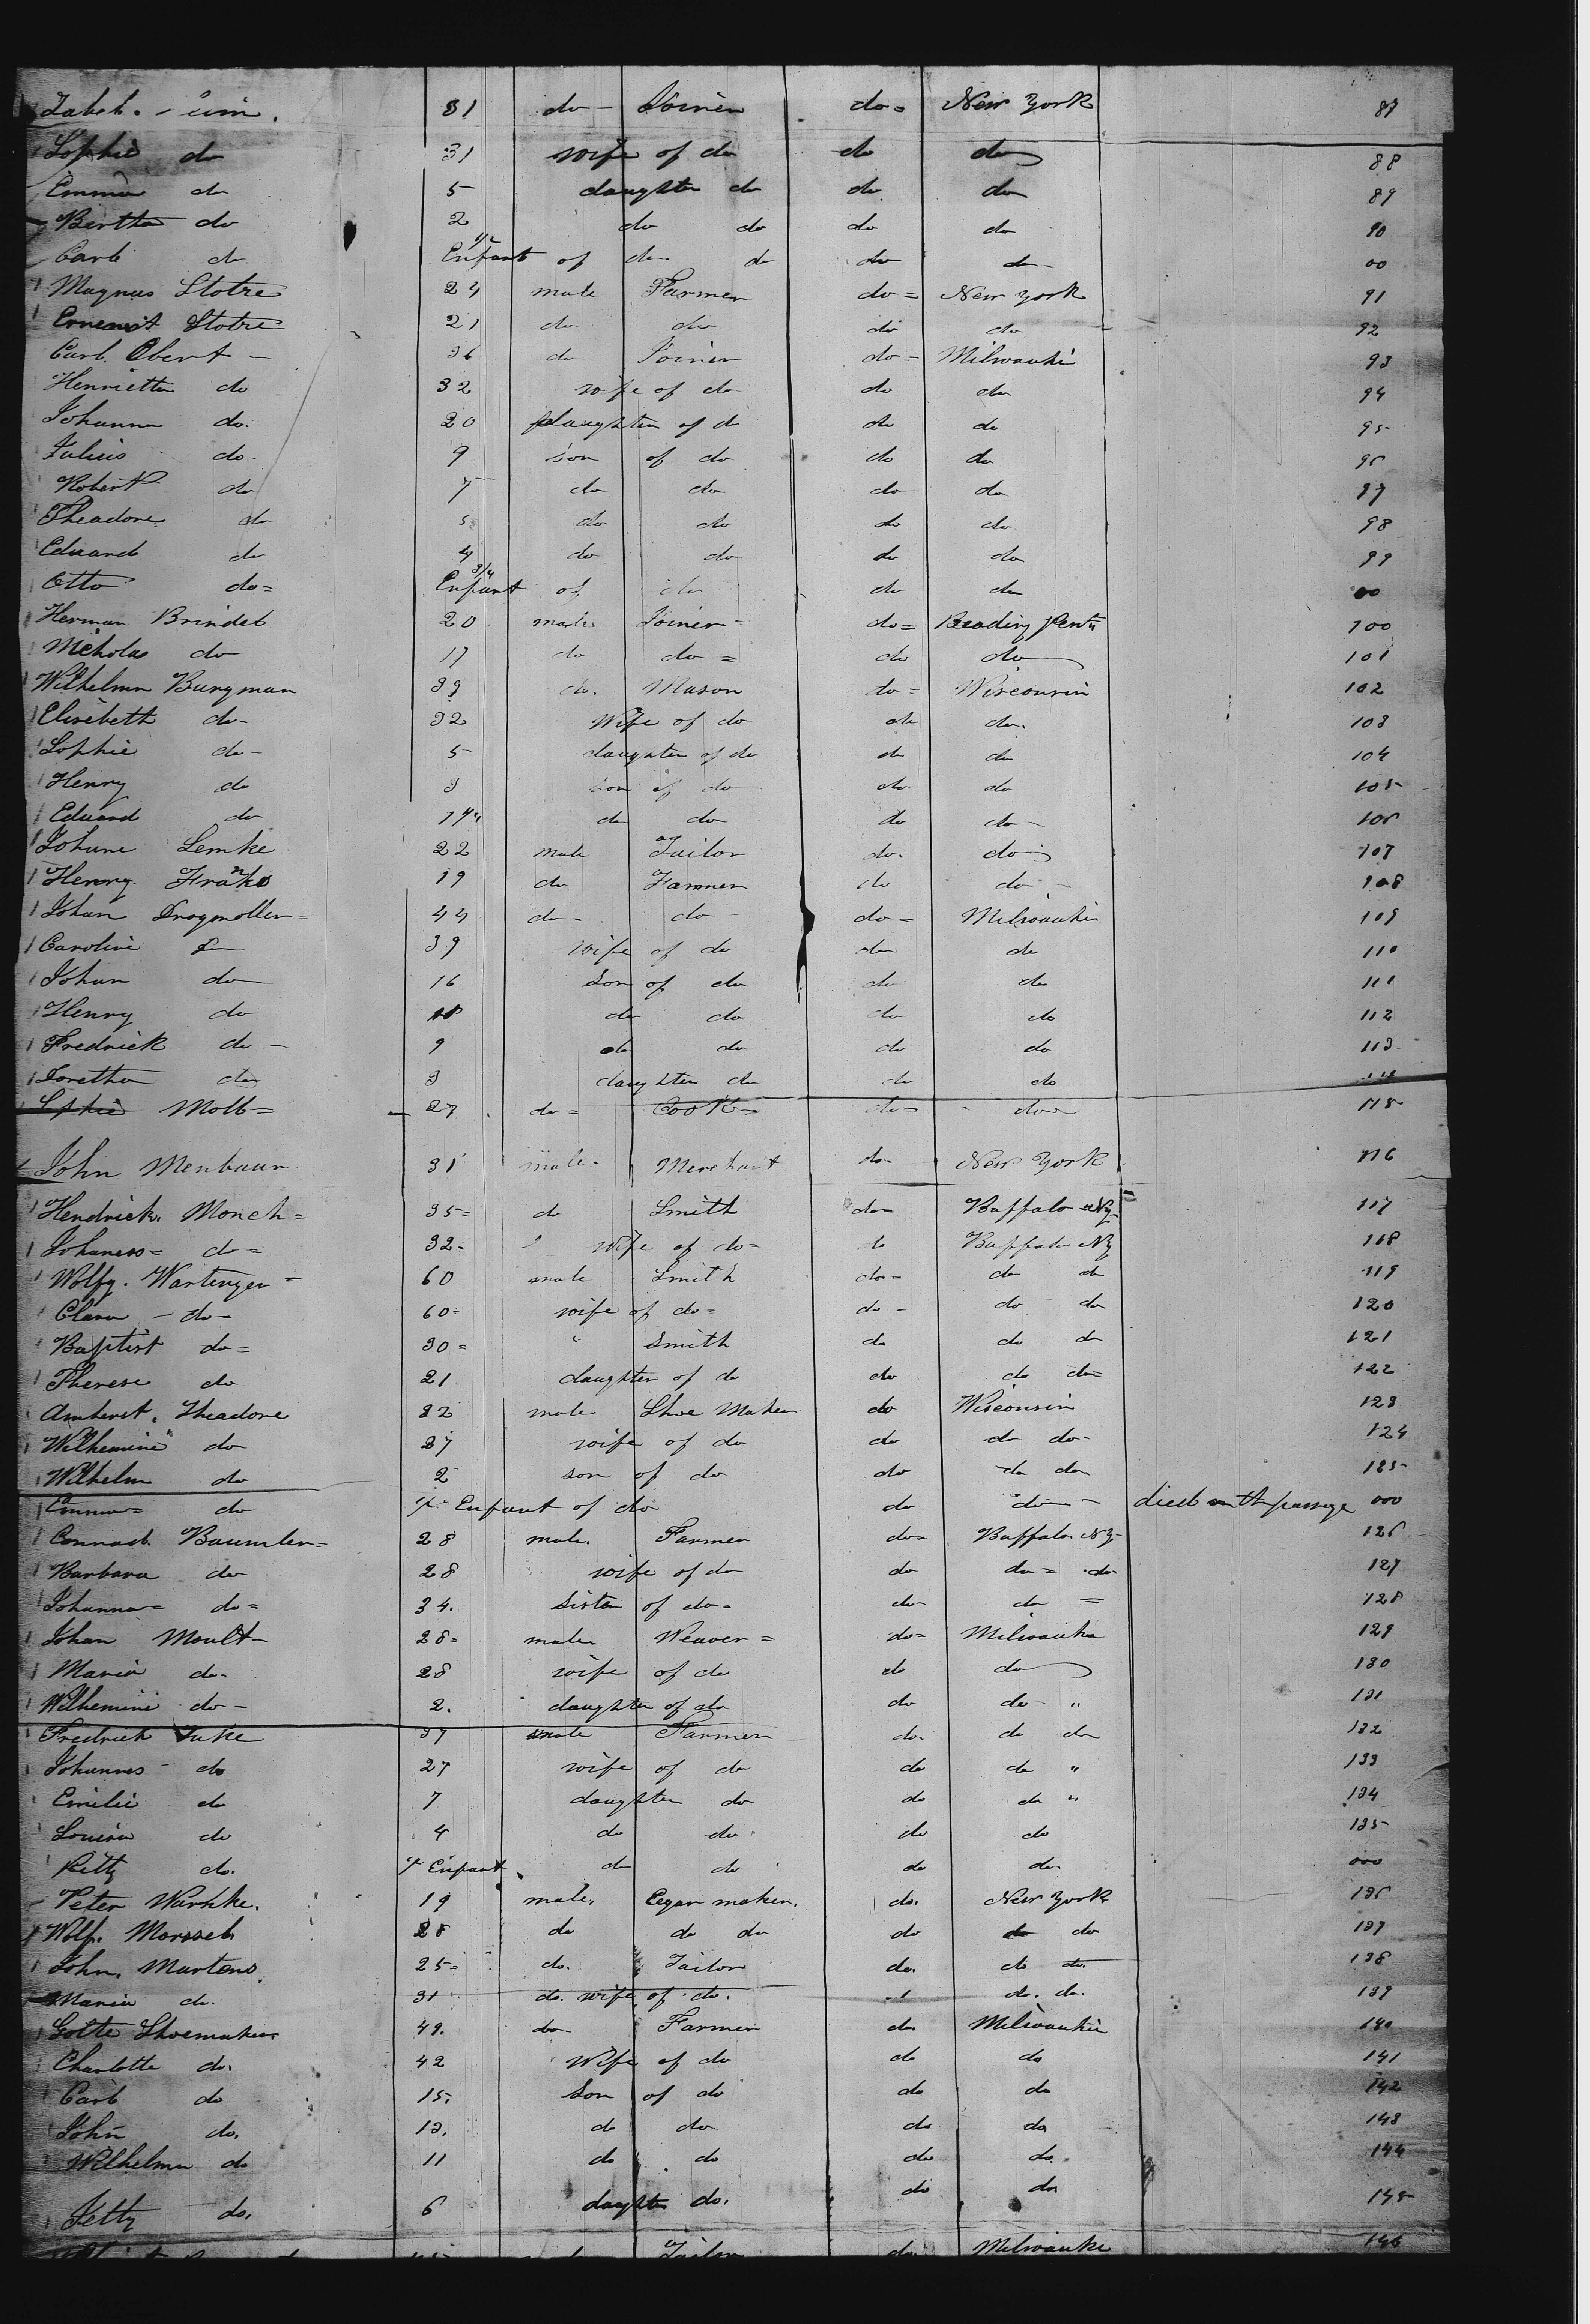 31 do - Joiner do = New York 87
Sophie do 31 wife of do do do 88
Emma do 5 daughter do do do 89
Bertha do 2 do do do do 90
Carl do Enfant of do do do do - 00
Magnus Stotre 24 male Farmer do = New York 91
Stotre 21 do do do do - 92
Carl Ebert - 36 do Joiner do - Milwauki 93
Henrietta do 32 wife of do do do 94
Johanna do. 20 daughter of do do do 95
Julius do - 9 son of do do do 96
Robert do 7 do do do do 97
Theadore do 5 do do do do 98
Eduard do 4 do do do do 99
Otto do = 3/4 Enfant of do do do 00
Herman Brindel 20 male Joiner - do = Reading 100
Nicholas do 17 do do = do do 101
Wilhelm Burgman 39 do. Mason do = Wisconsin 102
Elisebeth do - 32 Wife of do do do. 103
Sophie do - 5 daughter of do do do 104
Henry do 3 son of do do do 105
Eduard do do do do do - 106
Johann Lemke 22 male Tailor do. do 107
Henry 19 do Farmer do do - 108
Johan Drogmoller = 44 do - do - do = Milwauki 109
Caroline do 39 wife of do do do 110
Johan do 16 son of do do do 111
Henry do do do do do 112
Fredrick do - 9 do do do do 113
Doretha do 3 daughter do do do
Sophie Moll = 27 do = Cook = do = do 115
John Menbaur 31 male - Merchant do - New York 116
Hendrick. Monch = 35 = do Smith do = Buffalo NY - 117
Johaness = do = 32 - wife of do = do Buffalo NY 118
Wolfg. Wartinger = 60 male Smith do - do do 119
Clara - do - 60 - wife of do = do - do do 120
Baptist do = 30 = " Smith do do do 121
Therese do 21 daughter of do do do do = 122
Amherst. Theadore 32 male Shoe Maker do Wisconsin 123
Wilhemine do 27 wife of do do do do - 124
Wilhelm do 2 son of do do do do 125
Emma = do Enfant of do do do - died on th passage 000
Connard Baumler = 28 male. Farmer do = Buffalo. NY - 126
Barbara do 28 wife of do do do = do 127
Johanna = do = 34. Sister of do = do - do = 128
Johan Moult - 28 = male Weaver = do = Milwauke 129
Maria do - 28 wife of do do do 130
Wilhemine do - 2. daughter of do do do - " 131
Fredrich 37 male Farmer do. do do 132
Johannes do 27 wife of do do do " 133
Emilie do 7 daughter do do do " 134
Louisa do 4 do do do do 135
do. Enfant do do do do. 000
Peter Warnke. 19 male, Cegar maker. do. New York 136
Wolf. 28 do do do do do do 137
John. Martens. 25 = do. Tailor do. do do. 138
Maria do. 31 do. wife of do. do. do. 139
Gotte Shoemaker 49. do - Farmer do Milwaukie 140
Charlotte do. 42 Wife of do do do 141
Carl do 15. Son of do do do 142
John do. 13. do do do do 143
Wilhelm do 11 do do do do. 144
Jetty do. 6 daughter do. do do 145
Tailor do Milwauke 146